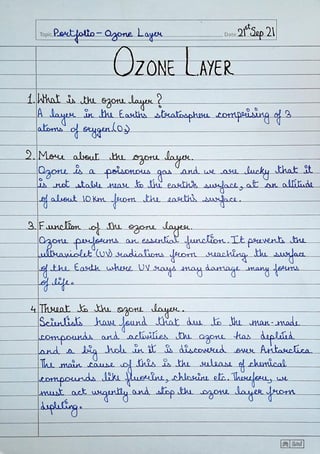 Topic Portfolio - Ozone Layer Date 21st Sep 21
OZONE LAYER
1. What is the ozone layer?
A layer in the Earths stratosphere comprising of 3
atoms of oxygen (O3)
2. More about the ozone layer.
Ozone is a poisonous gas and we are lucky that it
is not stable near to the earth's surface, at an altitude
of about 10 Km from the earth's surface.
3. Function of the ozone layer.
Ozone performs an essential function. It prevents the
ultraviolet (UV) radiations from reaching the surface
of the Earth where UV rays may damage many forms
of life.
4 Threat to the ozone layer.
Scientists have found that due to the man-made
compounds and activities the ozone has depleted
and a big hole in it is discovered over Antarctica.
The main cause of this is the release of chemical
compounds like fluorine, chlorine etc. Therefore, we
must act urgently and stop the ozone layer from
depleting.